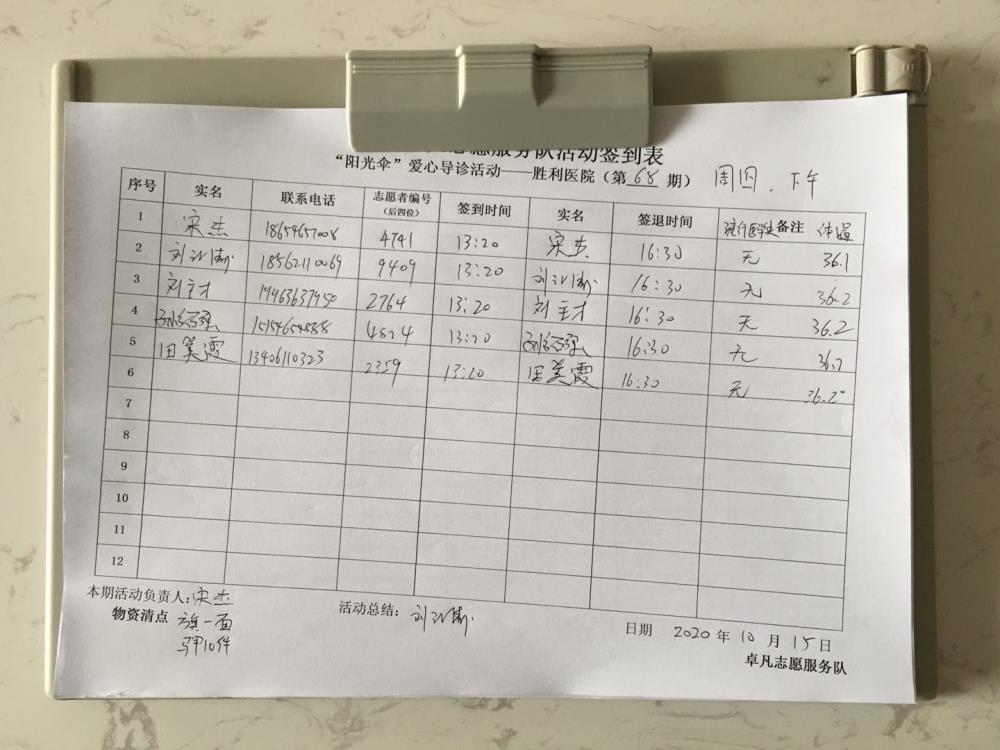 志愿服务队活动签到表
“阳光伞”爱心导诊活动——胜利医院（第68期） 周四.下午
序号 实名 联系电话 志愿者编号（后四位） 签到时间 实名 签退时间 备注 体温
1 宋杰 18654657008 4741 13:20 宋杰 16:30 无 36.1
2 刘 18562110069 9409 13:20 刘 16:30 无 36.2
3 刘主才 2764 13:20 刘主才 16:30 无 36.2
4 13:20 16:30 无
5 田美霞 13406110323 2359 13:20 田美霞 16:30 无 36.2
6
7
8
9
10
11
12
本期活动负责人:宋杰 活动总结： 刘
物资清点 旗一面
马甲10件
日期 2020年10月15日
卓凡志愿服务队